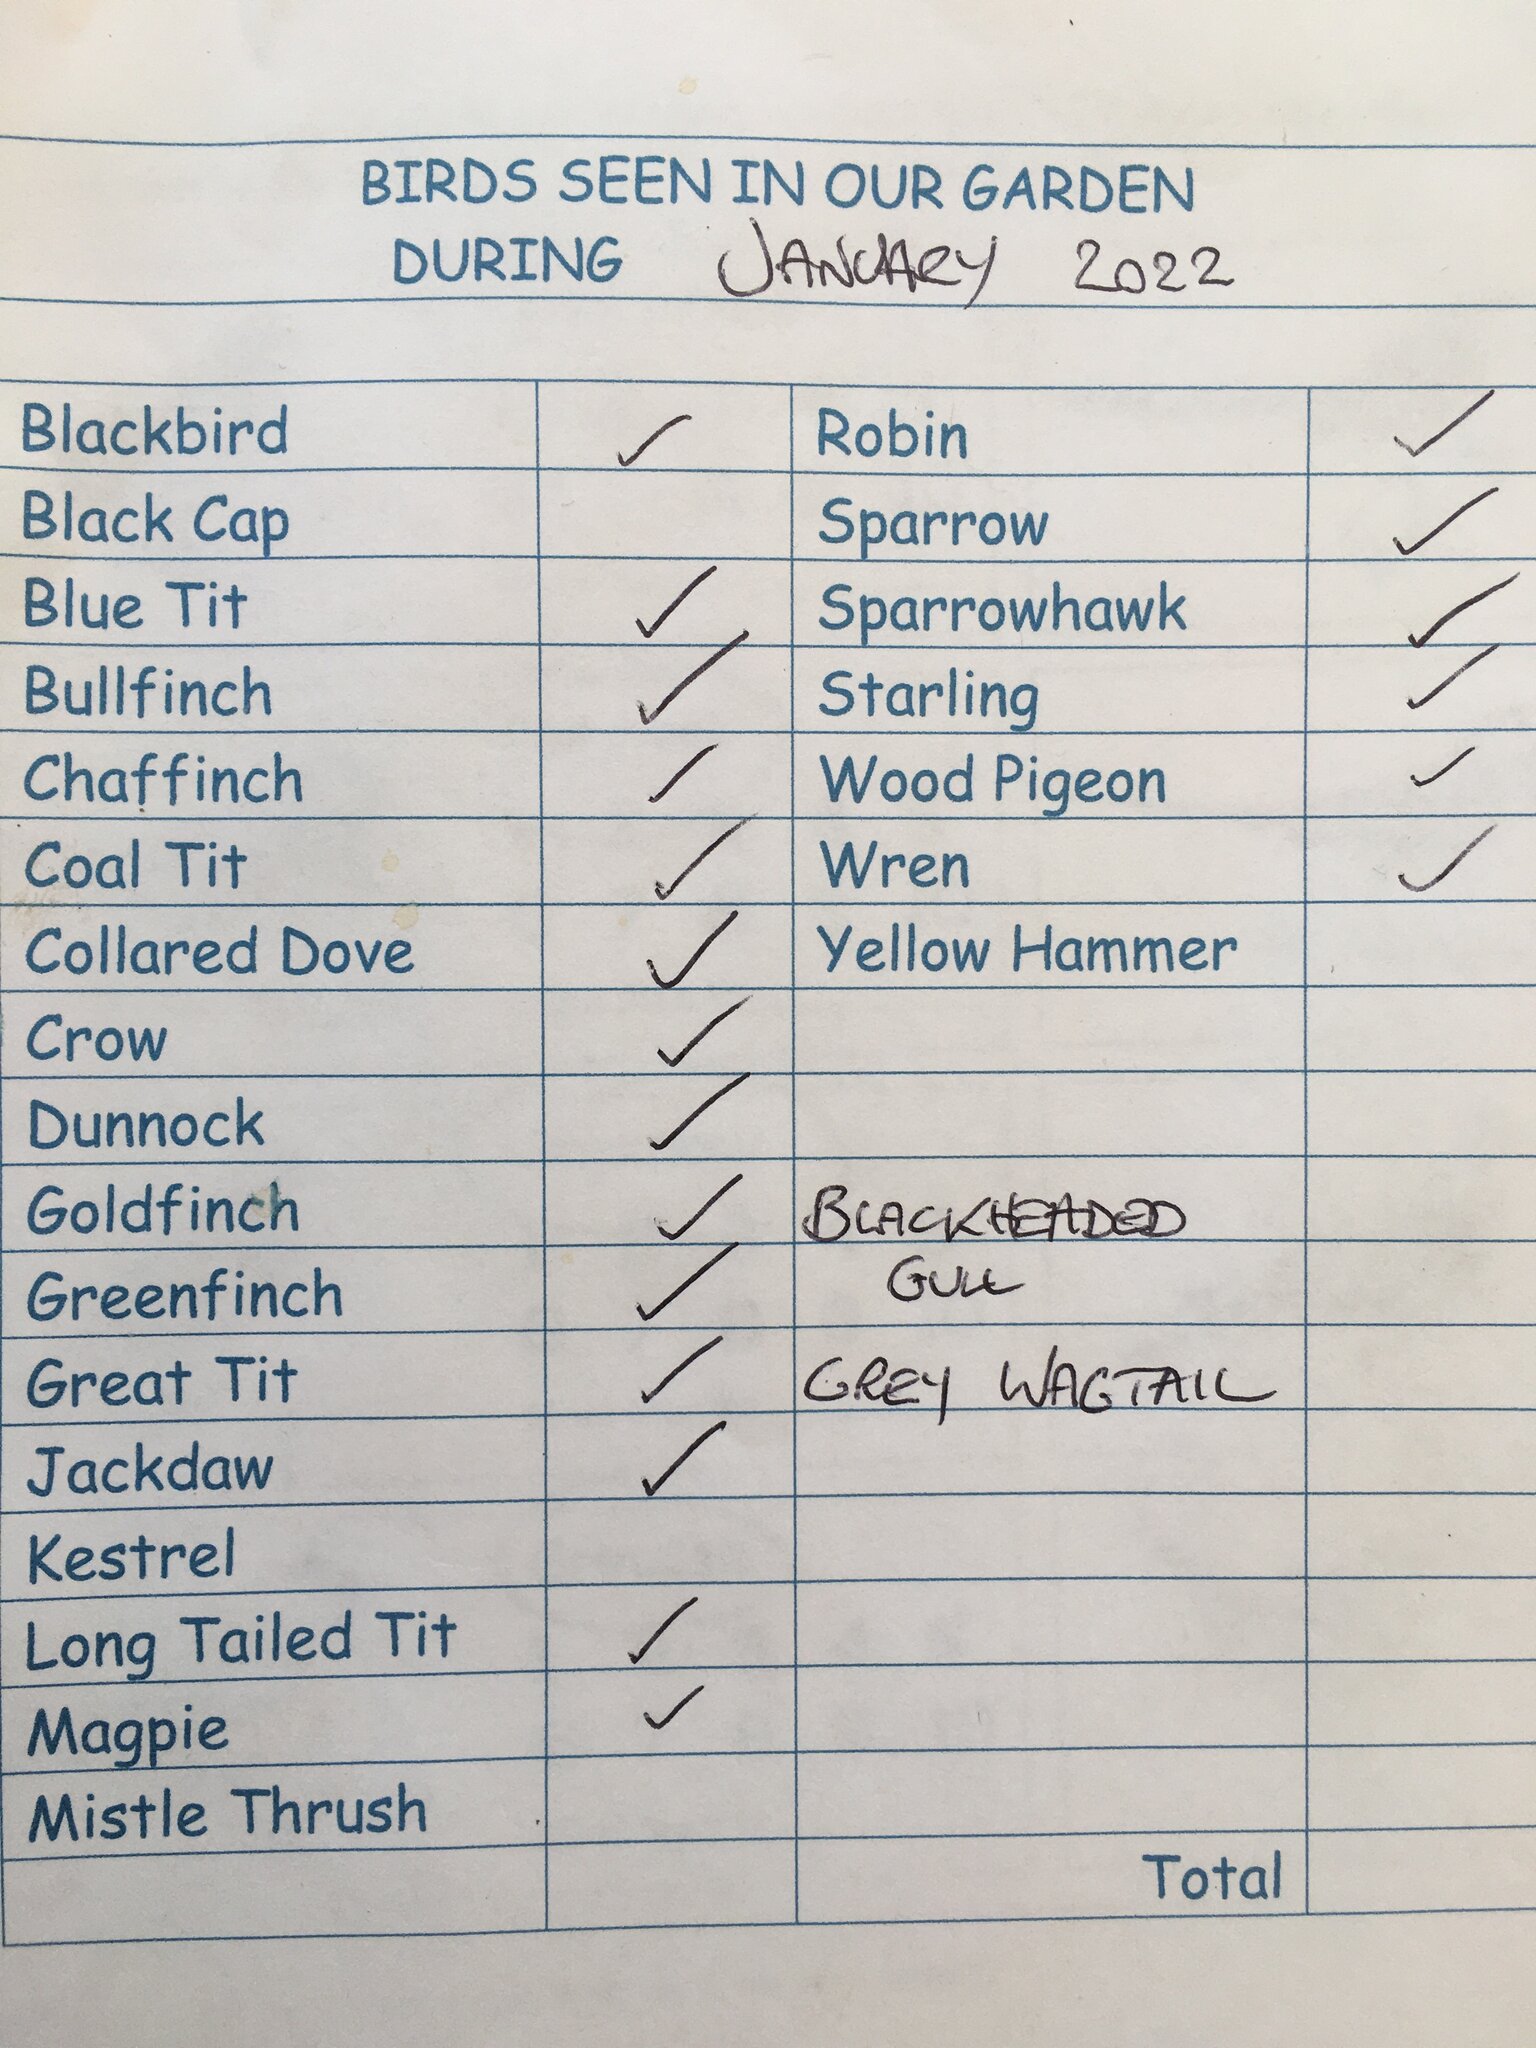 BIRDS SEEN IN OUR GARDEN
DURING JANUARY 2022
Blackbird ✓ Robin ✓
Black Cap Sparrow ✓
Blue Tit ✓ Sparrowhawk ✓
Bullfinch ✓ Starling ✓
Chaffinch ✓ Wood Pigeon ✓
Coal Tit ✓ Wren ✓
Collared Dove ✓ Yellow Hammer
Crow ✓
Dunnock ✓
Goldfinch ✓ BLACKHEADED
Greenfinch ✓ GULL
Great Tit ✓ GREY WAGTAIL
Jackdaw ✓
Kestrel
Long Tailed Tit ✓
Magpie ✓
Mistle Thrush
Total